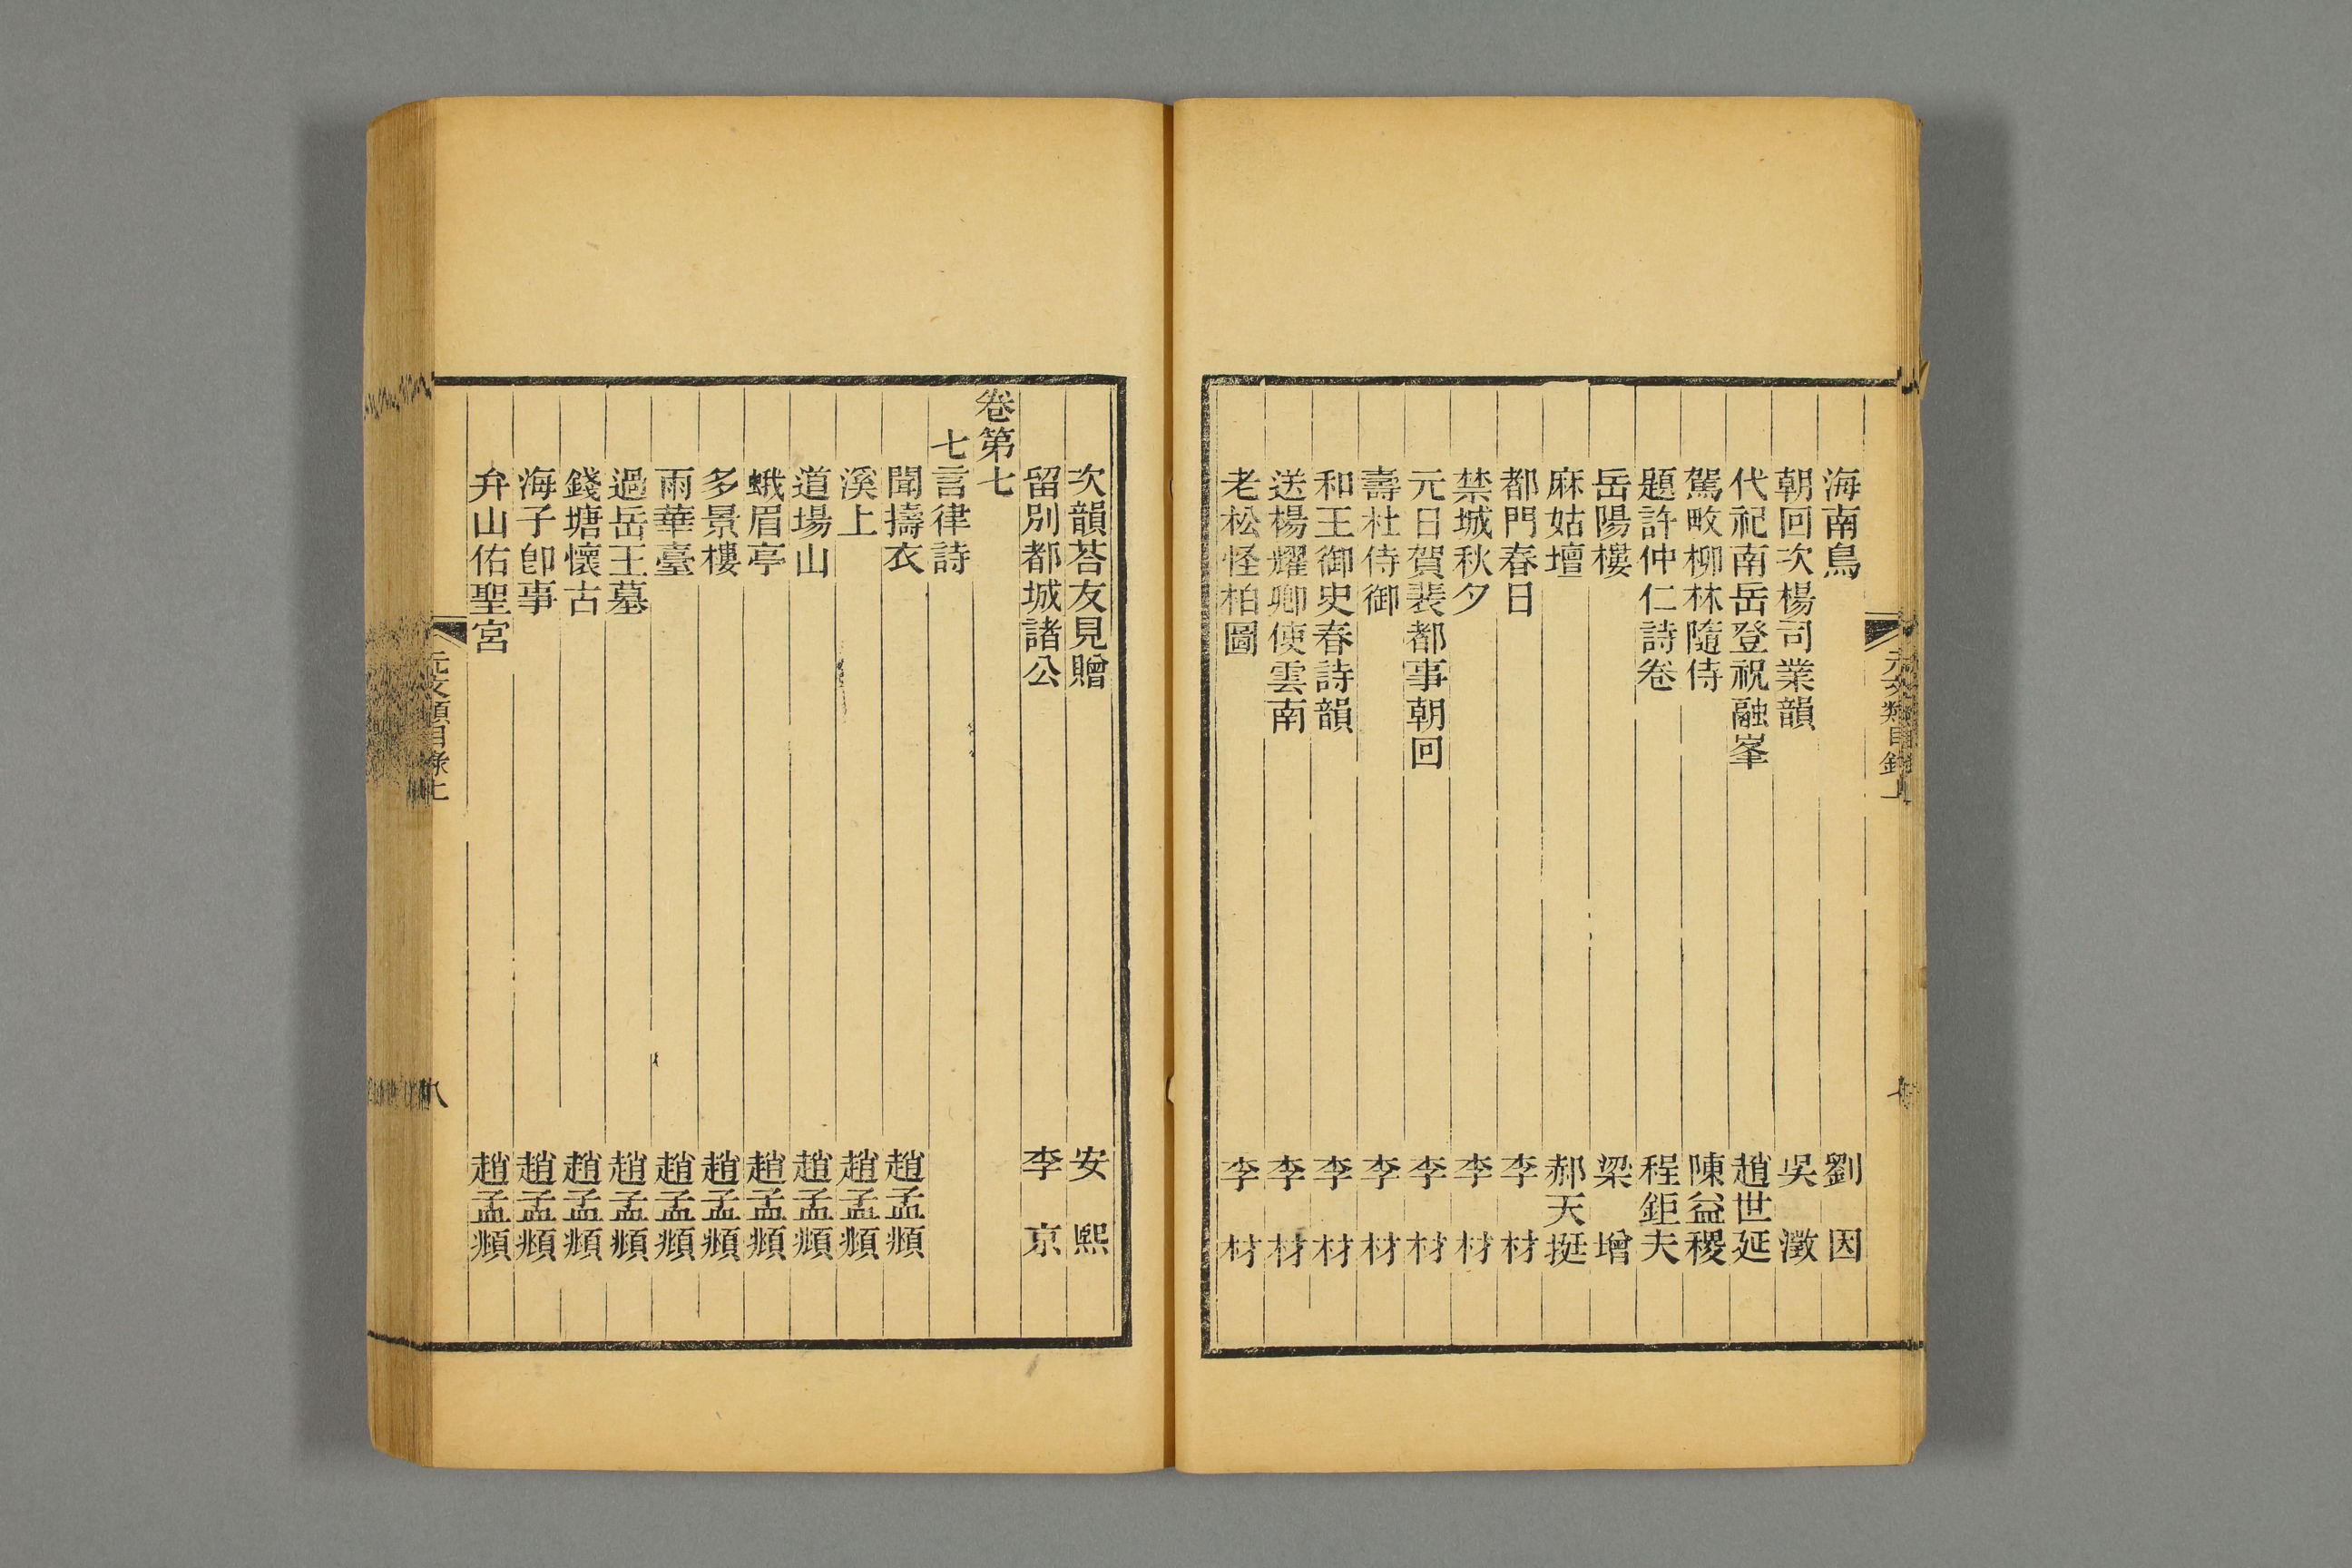 海南鳥 劉因
朝回次楊司業韻 吳澂
代祀南岳登祝融峯 趙世延
駕畋柳林隨侍 陳益稷
題許仲仁詩卷 程鉅夫
岳陽樓 梁增
麻姑壇 郝天挺
都門春日 李材
禁城秋夕 李材
元日賀裴都事朝回 李材
壽杜侍御 李材
和王御史春詩韻 李材
送楊耀卿使雲南 李材
老松怪柏圖 李材
次韻荅友見贈 安熙
留別都城諸公 李京
卷第七
七言律詩
聞擣衣 趙孟頫
溪上 趙孟頫
道場山 趙孟頫
蛾眉亭 趙孟頫
多景樓 趙孟頫
雨華臺 趙孟頫
過岳王墓 趙孟頫
錢塘懷古 趙孟頫
海子卽事 趙孟頫
弁山佑聖宮 趙孟頫
元文類目錄上
八